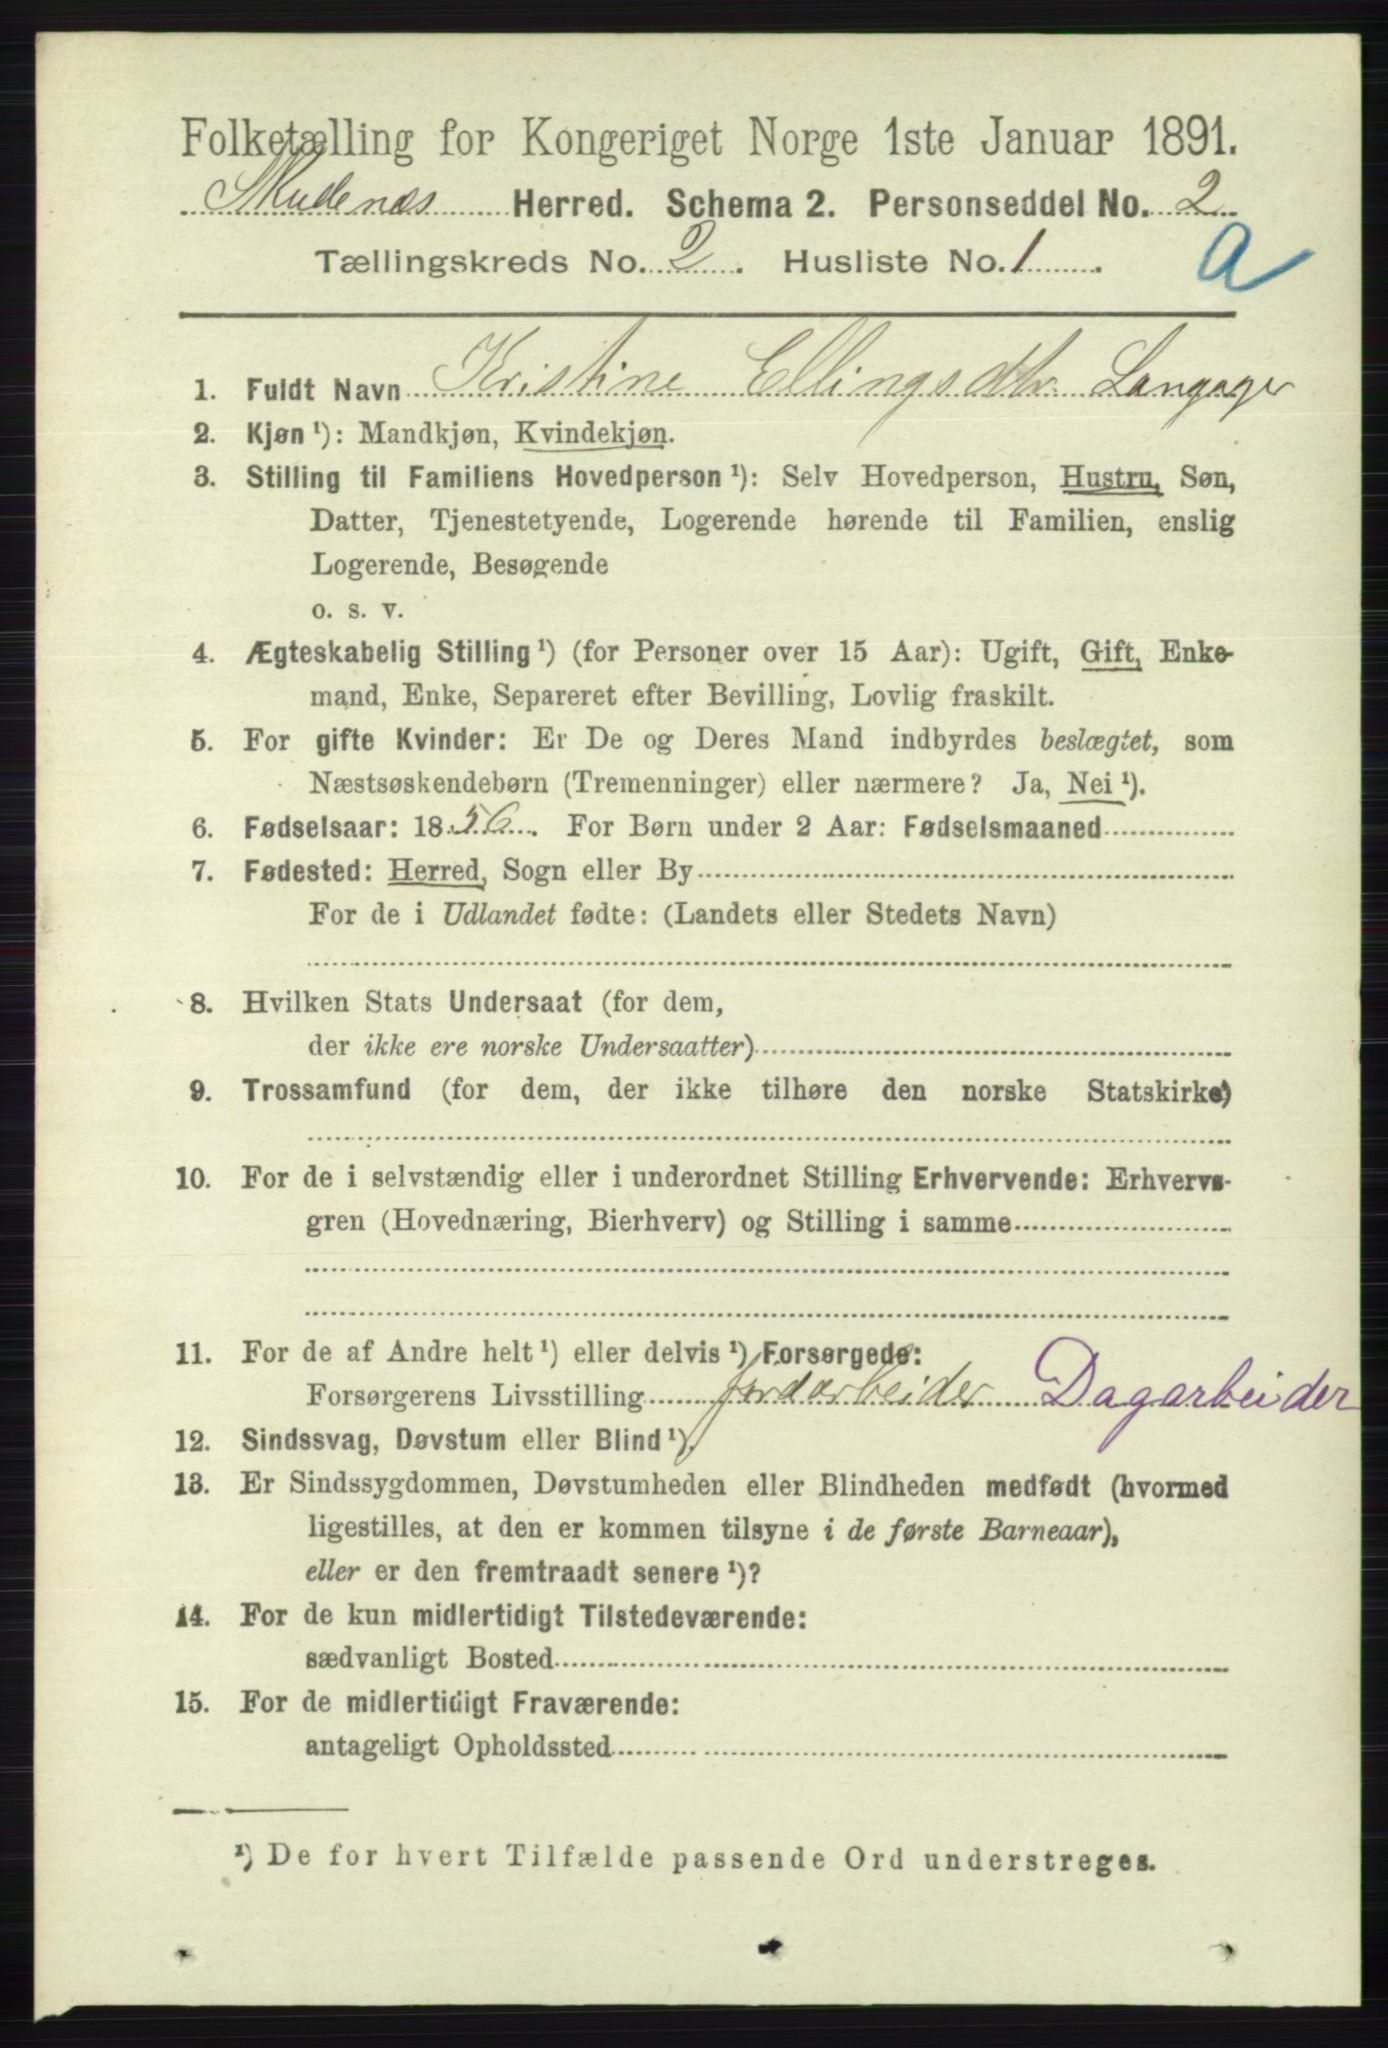 Folketælling for Kongeriget Norge 1ste Januar 1891.
Skudenes Herred. Schema 2. Personseddel No. 2
Tællingskreds No. 2. Husliste No. 1. a
1. Fuldt Navn Kristine Ellingsdtr. Langager
2. Kjøn ¹): Mandkjøn, Kvindekjøn.
3. Stilling til Familiens Hovedperson ¹): Selv Hovedperson, Hustru, Søn,
Datter, Tjenestetyende, Logerende hørende til Familien, enslig
Logerende, Besøgende
o. s. v.
4. Ægteskabelig Stilling ¹) (for Personer over 15 Aar): Ugift, Gift, Enke-
mand, Enke, Separeret efter Bevilling, Lovlig fraskilt.
5. For gifte Kvinder: Er De og Deres Mand indbyrdes beslægtet, som
Næstsøskendebørn (Tremenninger) eller nærmere? Ja, Nei ¹).
6. Fødselsaar: 1856. For Børn under 2 Aar: Fødselsmaaned
7. Fødested: Herred, Sogn eller By
For de i Udlandet fødte: (Landets eller Stedets Navn)
8. Hvilken Stats Undersaat (for dem,
der ikke ere norske Undersaatter)
9. Trossamfund (for dem, der ikke tilhøre den norske Statskirke)
10. For de i selvstændig eller i underordnet Stilling Erhvervende: Erhvervs-
gren (Hovednæring, Bierhverv) og Stilling i samme
11. For de af Andre helt ¹) eller delvis ¹) Forsørgede:
Forsørgerens Livsstilling Jordarbeider Dagarbeider
12. Sindssvag, Døvstum eller Blind ¹).
13. Er Sindssygdommen, Døvstumheden eller Blindheden medfødt (hvormed
ligestilles, at den er kommen tilsyne i de første Barneaar),
eller er den fremtraadt senere ¹)?
14. For de kun midlertidigt Tilstedeværende:
sædvanligt Bosted
15. For de midlertidigt Fraværende:
antageligt Opholdssted
¹) De for hvert Tilfælde passende Ord understreges.